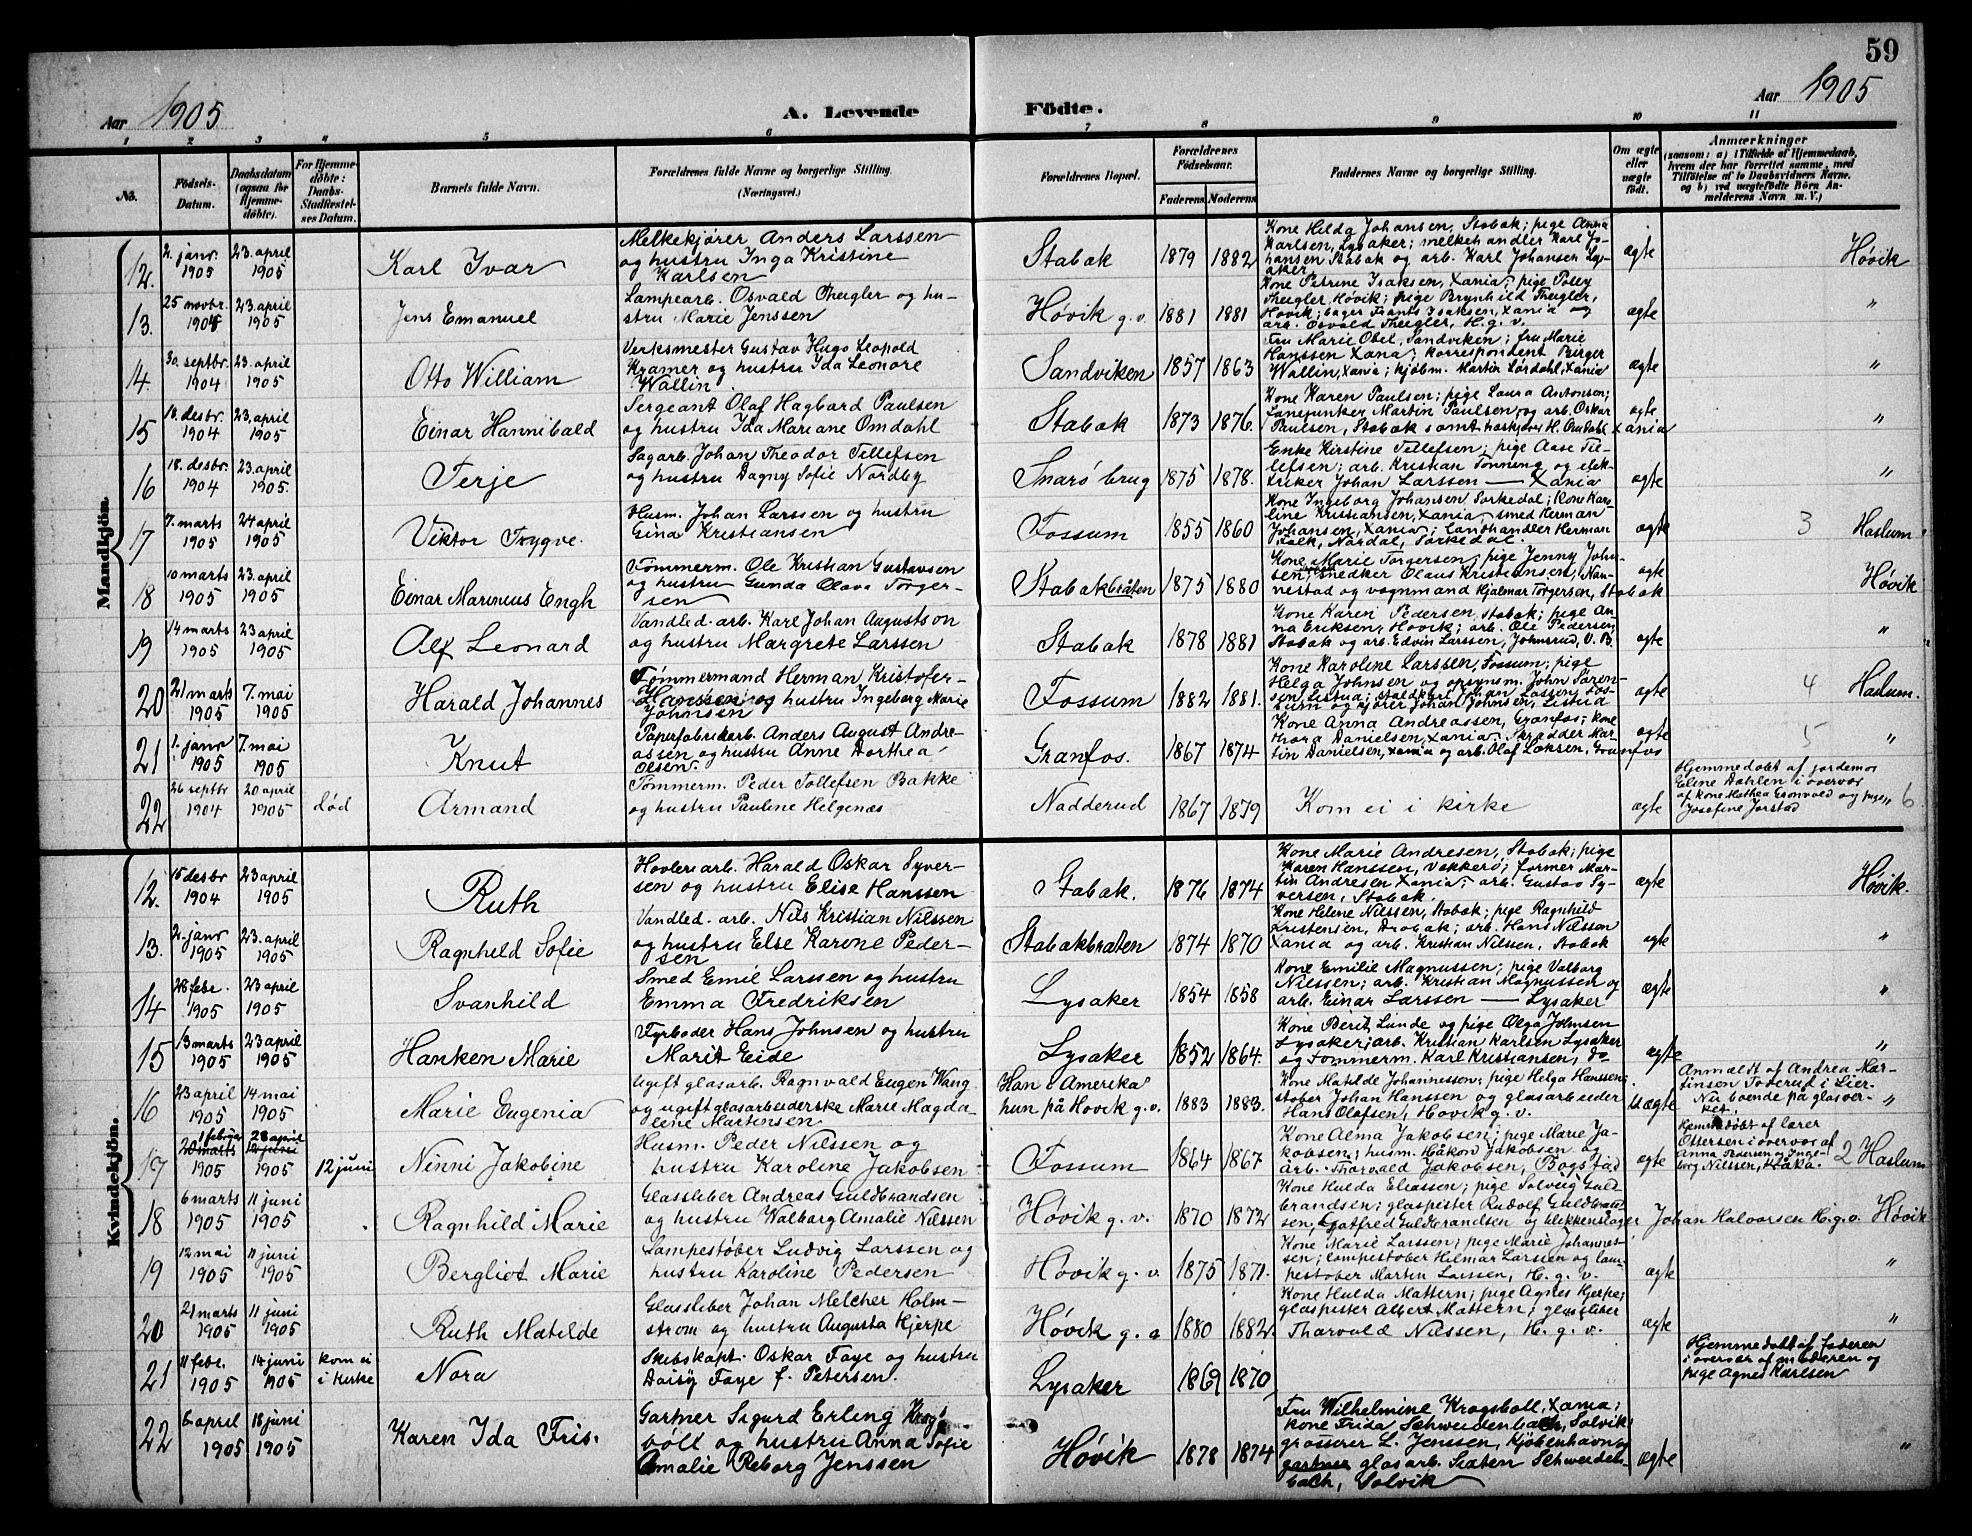 59
Aar 1905
A. Levende
Födte.
Aar 1905
1 2 3 4 5 6 7 8 9 10 11
No.
Födsels-
Datum.
Daabsdatum
(ogsaa for
Hjemme-
döbte).
For Hjemme-
döbte:
Daabs-
Stadfæstel-
ses Datum.
Barnets fulde Navn.
Forældrenes fulde Navne og borgerlige Stilling.
(Næringsvei.)
Forældrenes Bopæl.
Forældrenes
Födselsaar.
Faderens Moderens
Faddernes Navne og borgerlige Stilling.
Om ægte
eller
uægte
födt.
Anmærkninger
(saasom: a) i Tilfælde af Hjemmedaab,
hvem der har forrettet samme, med
Tilföielse af to Daabsvidners Navne,
og b) ved uægtefödte Börn An-
melderens Navn m. V.)
Mandkjön.
12. 2. janv. 1905 23. april 1905 Karl Ivar
Melkekjører Anders Larssen
og hustru Inga Kristine
Karlsen
Stabæk 1879 1882
Kone Hilda Johansen, Stabæk; pige Anna
Karlsen, Lysaker; melkehandler Karl Jo-
hansen Stabæk og arb. Karl Johansen Lys-
aker
ægte Høvik
13. 25 novbr. 1904 23. april 1905 Jens Emanuel
Lampearb. Osvald Theigler og hu-
stru Marie Jenssen
Høvik g. v. 1881 1881
Kone Petrine Isaksen, Xania; pige Polly
Theigler, Høvik; pige Brynhild Theigler,
Høvik; bager Frants Isaksen, Xania og
arb. Osvald Theigler, H. g. v.
ægte "
14. 30. septbr. 1904 23. april 1905 Otto William
Verksmester Gustav Hugo Leopold
Kramer og hustru Ida Leonore
Wallin
Sandviken 1857 1863
Fru Marie Otel, Sandviken; fru Marie
Hanssen Xania; korrespondent Birger
Wallin, Xania; kjøbm. Martin Lørdahl, Xania
ægte "
15 18. desbr. 1904 23. april 1905 Einar Hannibald
Sergeant Olaf Hagbard Paulsen
og hustru Ida Mariane Omdahl
Stabæk 1873 1876.
Kone Karen Paulsen; pige Laura Antonsen;
Lanejunker Martin Paulsen og arb. Oskar
Paulsen, Stabæk samt H. Omdahl Xania
ægte "
16 18. desbr. 1904 23. april 1905. Terje
Sagarb. Johan Theodor Tellefsen
og hustru Dagny Sofie Nordby
Snarø brug 1875 1878.
Enke Kirstine Tellefsen; pige Aase Tel-
lefsen; arb. Kristian Tønning og elek-
triker Johan Larssen — Xania
ægte "
17 7. marts 1905 24 april 1905 Viktor Trygve.
Husm. Johan Larssen og hustru
Gina Kristiansen
Fossum 1855 1860
Kone Ingeborg Johansen Sørkedal; Kone Karo-
line Kristiansen, Xania, smed Herman
Johansen, Xania; Landhandler Herman
Nordal, Sørkedal.
ægte 3 Haslum.
18 10 marts 1905 23. april 1905 Einar Marinius Engh
Tømmerm. Ole Kristian Gustavsen
og hustru Gunda Olava Torger-
sen
Stabækbråten 1875 1880
Kone Marie Torgersen; pige Jenny John-
sen; snedker Olaus Kristiansen, Nan-
nestad og vognmand Hjalmar Torgersen, Stabæk
ægte Høvik
19 14 marts 1905 23 april 1905 Alf Leonard
Vandled. arb. Karl Johan Augustson
og hustru Margrete Larssen
Stabæk 1878 1881
Kone Karen Pedersen Stabæk; pige An-
na Eriksen, Høvik; arb. Ole Pedersen
Stabæk og arb. Edvin Larssen, Johnsrud, V. B.
ægte "
20 21 marts 1905 7. mai 1905 Harald Johannes
Tømmermand Herman Kristofer
Hanssen og hustru Ingeborg Marie
Johnsen
Fossum 1882 1881.
Kone Karoline Larssen, Fossum; pige
Helga Johnsen og opsynsm. John Søren-
sen Listua; staldkarl Johan Lassen Fos-
sum og kjører Johan Johnsen, Listua
ægte 4 Haslum.
21 1. janv 1905 7. mai 1905 Knut
Papirfabrikarb. Anders August Andre-
assen og hustru Anne Dorthea
Olsen.
Granfos. 1867 1874
Kone Anna Andreassen, Granfos; kone
Thora Danielsen, Xania. Skrædder Mar-
tin Danielsen, Xania og arb. Olaf Løksen, Granfos
ægte 5 "
22 26 septbr 1904 20 april 1905 død Armand
Tømmerm. Peder Tollefsen Bakke
og hustru Pauline Helgenæs
Nadderud 1867 1879
Kom ei i kirke
ægte
Hjemmedøbt af jordemor
Elene Dahlen i overvær
af kone Mathea Grønvold og pige
Josefine Jorstad
" 6
Kvindekjön.
12. 15 desbr 1904 23 april 1905 Ruth
Høvleriarb. Harald Oskar Syver-
sen og hustru Elise Hanssen
Stabæk. 1876 1874
Kone Marie Andresen, Stabæk; pige
Karen Hanssen, Vækkerø; former Mar-
tin Andresen Xania; arb. Gustav Sy-
versen, Stabæk.
ægte Høvik.
13. 2. janv 1905 23. april 1905 Ragnhild Sofie
Vandled. arb. Nils Kristian Nilssen
og hustru Else Karine Peder-
sen
Stabækbraaten 1874 1870
Kone Helene Nilssen, Stabæk; pige Ragnhild
Kristensen, Drøbak; arb. Hans Nilsson
Xania og arb. Kristian Nilsen, Stabæk
ægte "
14 28 febr. 1905 23 april 1905 Svanhild
Smed Emil Larssen og hustru
Emma Fredriksen
Lysaker 1854 1858
Kone Emilie Magnussen; pige Valborg
Nilssen; arb. Kristian Magnussen og
arb. Einar Larssen — Lysaker
ægte "
15 13 marts 1905 23 april 1905 Hanken Marie
Fyrbøder Hans Johnsen og hustru
Marit Eide
Lysaker 1852 1864.
Kone Berit Lunde og pige Olga Johnsen
Lysaker; arb. Kristian Karlsen Lysaker
og Tømmerm. Karl Kristiansen, do
ægte "
16 23 april 1905 14 mai 1905 Marie Eugenia
Ugift glasarb. Ragnvald Eugen Wang
og ugift glasarbeiderske Marie Magda-
lene Martinsen
Han i Amerika
hun på Høvik g. v. 1883 1883.
Kone Matilde Johannessen; pige Helga Hanssen;
støber Johan Hanssen og glasarbeider
Hans Olafsen, Høvik g. v.
uægte
Anmeldt af Andrea Mar-
tinsen Toverud i Lier.
Nu boende på glasver-
ket.
"
17 1 februar 20 marts 1905 23 april 12 juni 1905 12 juni Ninni Jakobine
Husm. Peder Nilssen og
hustru Karoline Jakobsen
Fossum 1864 1867
Kone Alma Jakobsen; pige Marie Ja-
kobsen; husm. Håkon Jakobsen og
arb. Thorvald Jakobsen, Bogstad
ægte
Hjemmedøbt af lærer
Ottersen i overvær af
Anna Pedersen og Inge-
borg Nilssen,
2 Haslum
18 6 marts 1905 11 juni 1905 Ragnhild Marie
Glassliber Andreas Guldbrandsen
og hustru Walborg Amalie Nilssen
Høvik g. v. 1870 1872
Kone Hulda Eliassen; pige Solveig Guld
brandsen; glaspister Rudolf Guldbrand-
sen, Gotfred Guldbrandsen og blikkenslager Johan Halvorsen H. g. v. Høvik
19 12 mai 1905 11 juni 1905 Bergliot Marie
Lampestøber Ludvig Larssen og
hustru Karoline Pedersen
Høvik g. v. 1875 1871.
Kone Marie Larssen; pige Marie Johannes-
sen; lampestøber Hilmar Larsen og lam-
pestøber Martin Larssen, H. g. v.
ægte "
20 21 marts 1905 11 juni 1905 Ruth Matilde
Glassliber Johan Melcher Holm-
strøm og hustru Augusta Kjerpe
Høvik g. v 1880 1882.
Kone Hulda Mattern; pige Agnes Kjerpe;
glaspister Albert Mattern; glassliber
Tharvald Nilssen, H. g. v.
ægte "
21 11 febr. 1905 14 juni 1905 kom ei i kirke Nora
Skibskapt. Oskar Faye og hustru
Daisy Faye f. Petersen.
Lysaker 1869 1870
Hjemmedøbt af faderen
i overvær af moderen og
pige Agnes Karlsen
22 6 april 1905 18 juni 1905 Karen Ida Friis.
Gartner Sigurd Erling Krogs-
bøll og hustru Anna Sofie
Amalie Reborg Jenssen
Høvik 1878 1874
Fru Wilhelmine Krogsbøll, Xania;
kone Frida Schweidenbach, Solvik;
grosserer L. Jenssen, Kjøbenhavn og
glasarb. Schweiden-
bach, Solvik
ægte "